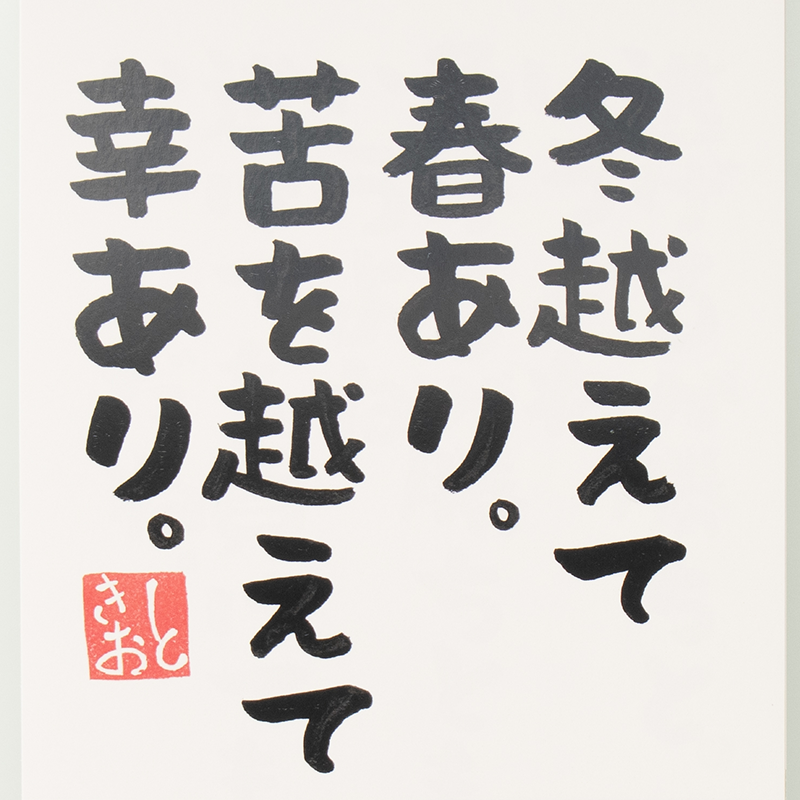 冬越えて
春あり。
苦を越えて
幸あり。
しと
きお